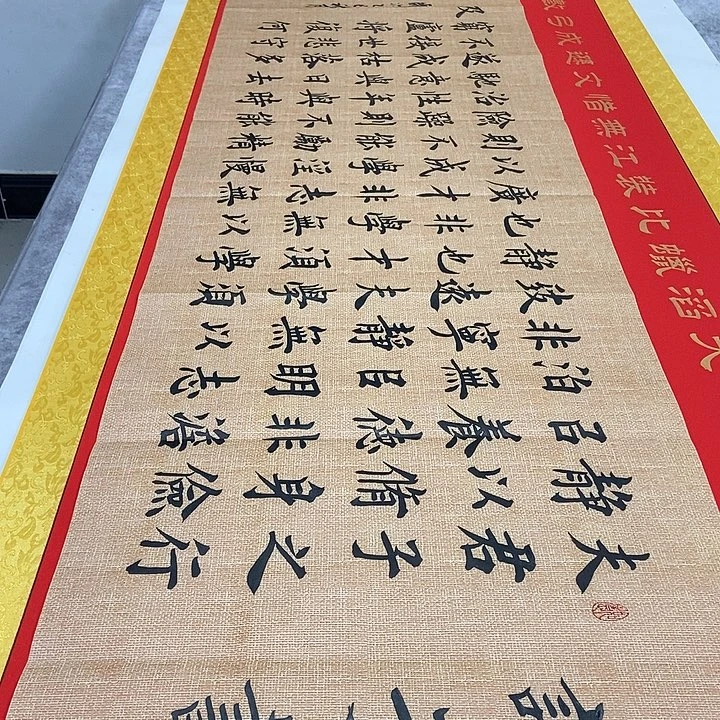 夫君子之行
靜以脩身儉
㠯養德非澹
泊無㠯明志
非寧靜無以
致遠夫學須
靜也才須學
也非學無以
廣才非志無
以成學淫慢
則不能勵精
險躁則不能
治性年與時
馳意與日去
遂成枯落多
不接世悲守
窮廬將復何
及
大滔蠟比裝江無惜文選成弓